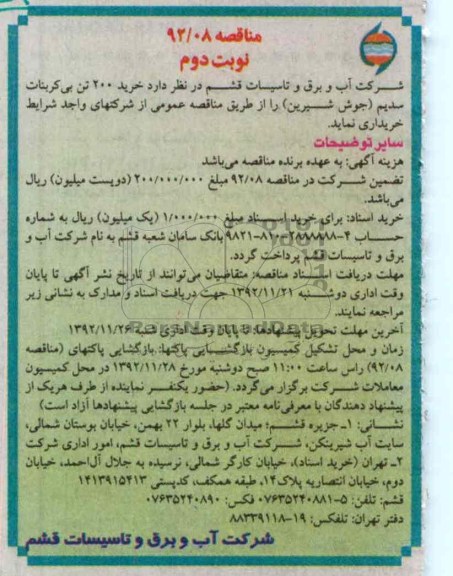 مناقصه ۹۲/۰۸
نوبت دوم
شرکت آب و برق و تاسیسات قشم در نظر دارد خرید ۲۰۰ تن بی‌کربنات
سدیم (جوش شیرین) را از طریق مناقصه عمومی از شرکتهای واجد شرایط
خریداری نماید.
سایر توضیحات
هزینه آگهی: به عهده برنده مناقصه می‌باشد
تضمین شرکت در مناقصه ۹۲/۰۸ مبلغ ۲۰۰/۰۰۰/۰۰۰ (دویست میلیون) ریال
می‌باشد.
خرید اسناد: برای خرید اسناد مبلغ ۱/۰۰۰/۰۰۰ (یک میلیون) ریال به شماره
حساب بانک سامان شعبه قشم به نام شرکت آب و
برق و تاسیسات قشم پرداخت گردد.
مهلت دریافت اسناد مناقصه: متقاضیان می‌توانند از تاریخ نشر آگهی تا پایان
وقت اداری دوشنبه ۱۳۹۲/۱۱/۲۱ جهت دریافت اسناد و مدارک به نشانی زیر
مراجعه نمایند.
آخرین مهلت تحویل پیشنهادها: تا پایان وقت اداری شنبه ۱۳۹۲/۱۱/۲۶
زمان و محل تشکیل کمیسیون بازگشایی پاکتها: بازگشایی پاکتهای (مناقصه
۹۲/۰۸) راس ساعت ۱۱:۰۰ صبح دوشنبه مورخ ۱۳۹۲/۱۱/۲۸ در محل کمیسیون
معاملات شرکت برگزار می‌گردد. (حضور یکنفر نماینده از طرف هریک از
پیشنهاد دهندگان با معرفی‌نامه معتبر در جلسه بازگشایی پیشنهادها آزاد است)
نشانی: ۱ـ جزیره قشم؛ میدان گلها، بلوار ۲۲ بهمن، خیابان بوستان شمالی،
سایت آب شیرینکن، شرکت آب و برق و تاسیسات قشم، امور اداری شرکت
۲ـ تهران (خرید اسناد)، خیابان کارگر شمالی، نرسیده به جلال آل‌احمد، خیابان
دوم، خیابان انتصاریه پلاک ۱۴، طبقه همکف، کدپستی ۱۴۱۳۹۱۵۴۱۳
قشم: تلفن: ۵-۰۷۶۳۵۲۴۰۸۸۱ فکس: ۰۷۶۳۵۲۴۰۸۹۰
دفتر تهران: تلفکس: ۱۹-۸۸۳۳۹۱۱۸
شرکت آب و برق و تاسیسات قشم